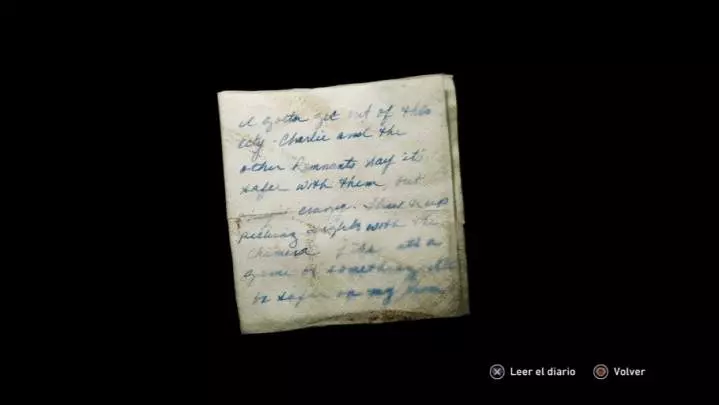 I gotta get out of this
city - Charlie and the
other Remnants say it's
safer with them, but
crazies. They keep
picking fights with the
Chimera like it's a
game or something. I'll
be safer on my own
Leer el diario
Volver